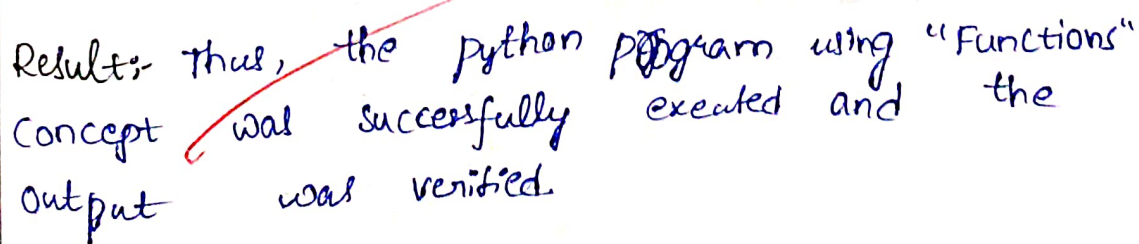 Result:- Thus, the python program using "Functions"
Concept was successfully exeuted and the
output was verified.